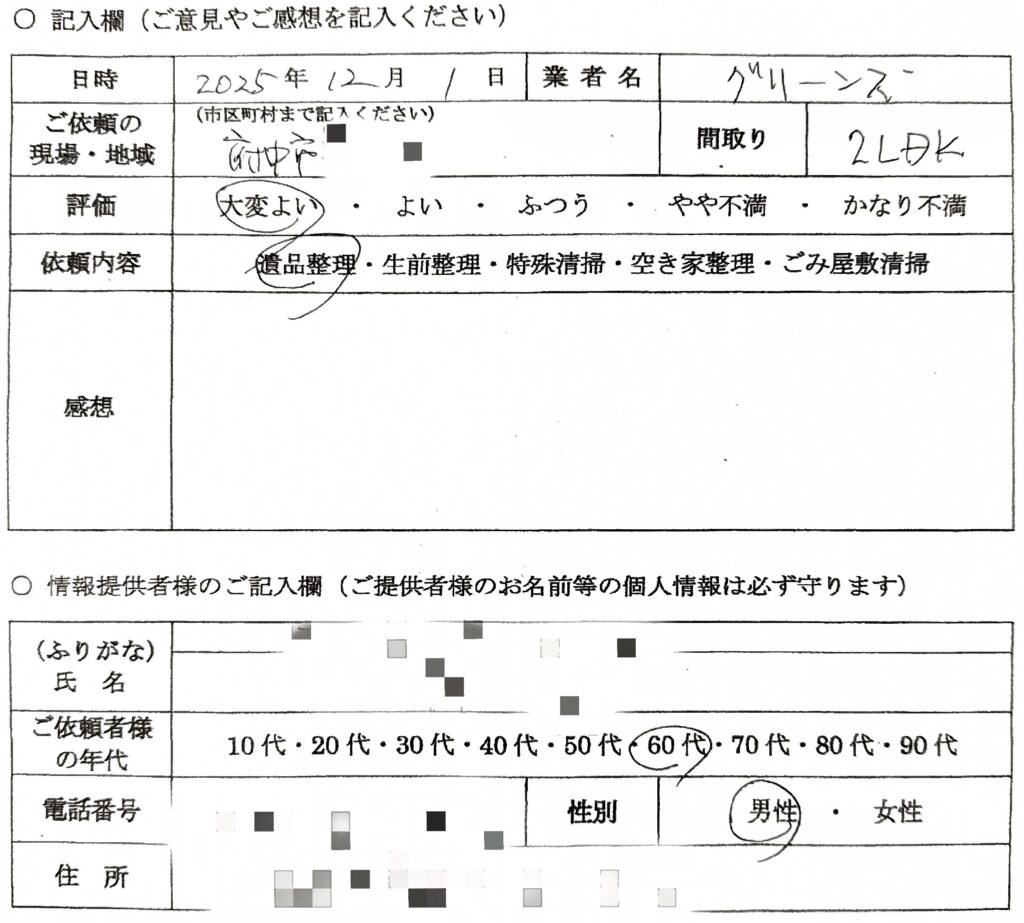 〇 記入欄（ご意見やご感想を記入ください）
日時 2025年 12月 1日 業者名 グリーンズ
ご依頼の現場・地域 （市区町村まで記入ください） 府中市 間取り 2LDK
評価 大変よい ・ よい ・ ふつう ・ やや不満 ・ かなり不満
依頼内容 遺品整理・生前整理・特殊清掃・空き家整理・ごみ屋敷清掃
感想
〇 情報提供者様のご記入欄（ご提供者様のお名前等の個人情報は必ず守ります）
（ふりがな）
氏 名
ご依頼者様の年代 10代・20代・30代・40代・50代・60代・70代・80代・90代
電話番号 性別 男性 ・ 女性
住 所